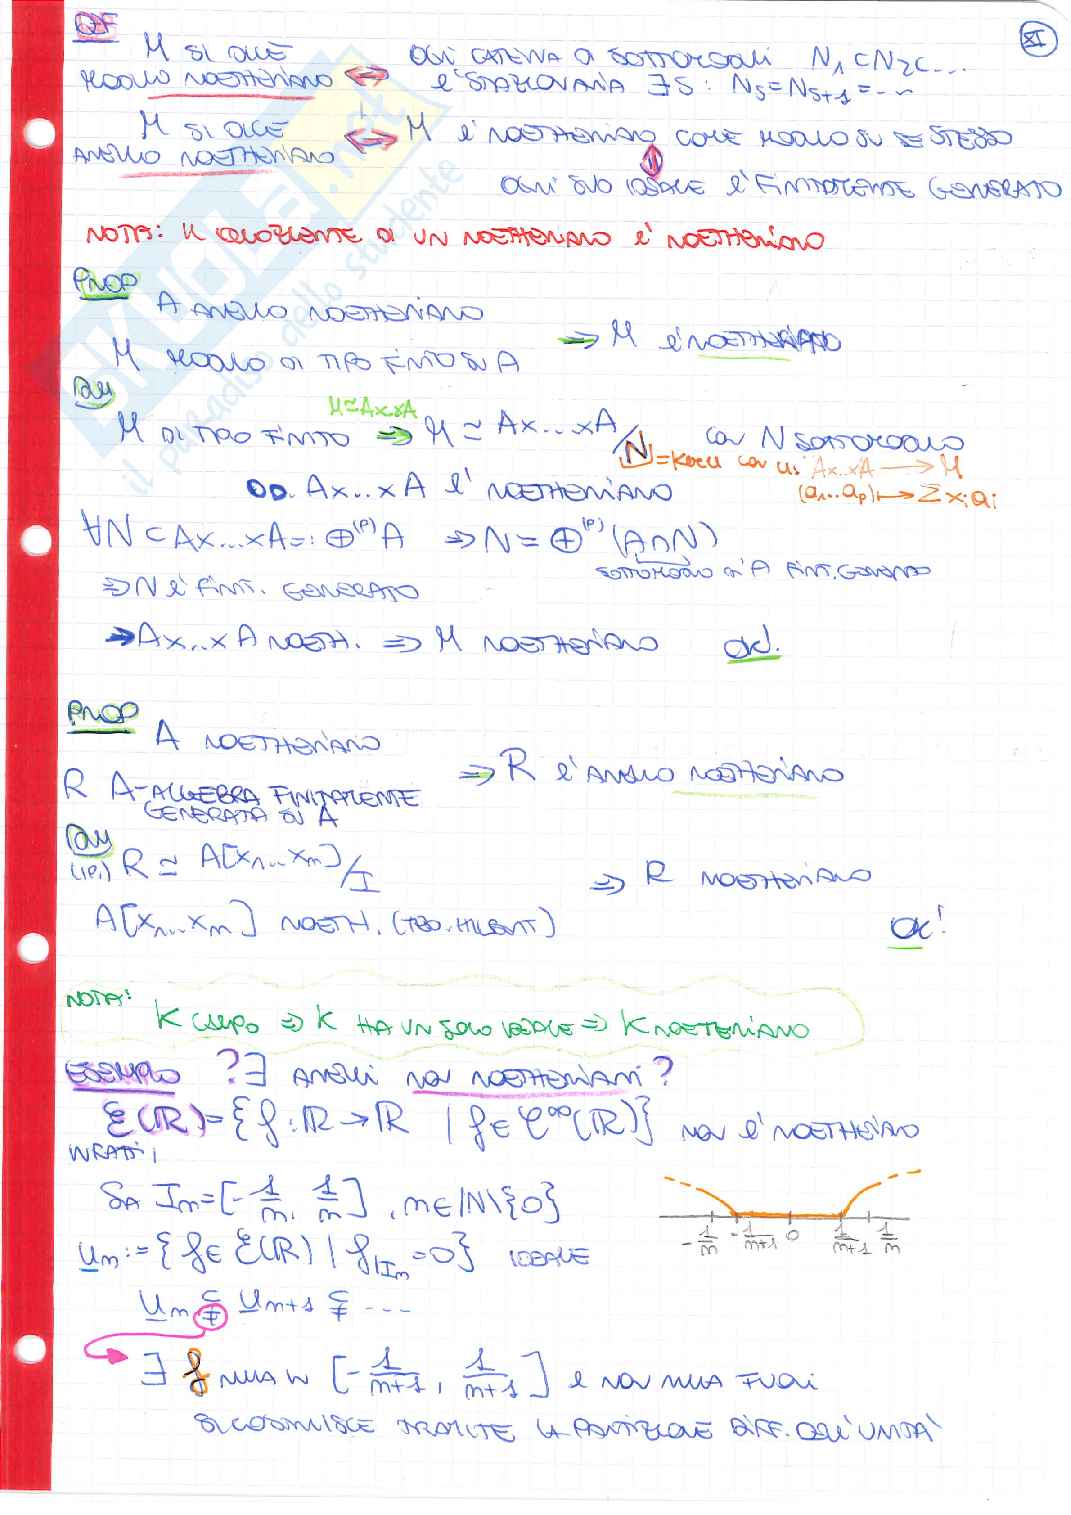 DEF
XI
M SI DICE MODULO NOETHERIANO ⟺ OGNI CATENA DI SOTTOMODULI N₁ ⊂ N₂ ⊂ ...
È STAZIONARIA ∃ S : N_S = N_{S+1} = ...
M SI DICE ANELLO NOETHERIANO ⟺ M È NOETHERIANO COME MODULO SU SE STESSO
⇕
OGNI SUO IDEALE È FINITAMENTE GENERATO
NOTA: IL QUOZIENTE DI UN NOETHERIANO È NOETHERIANO
PROP
A ANELLO NOETHERIANO
M MODULO DI TIPO FINITO SU A ⇒ M È NOETHERIANO
DIM
M ≃ A×...×A
M DI TIPO FINITO ⇒ M ≃ A×...×A/N CON N SOTTOMODULO
N = KER CON A×...×A → M
(a₁...a_p) ↦ Σ x_i a_i
DD. A×...×A È NOETHERIANO
∀N ⊂ A×...×A =: ⊕^(P) A ⇒ N = ⊕^(P) (A∩N)
SOTTOMODULO DI A FINIT. GENERATO
⇒ N È FINIT. GENERATO
⇒ A×...×A NOETH. ⇒ M NOETHERIANO OK!
PROP
A NOETHERIANO
R A-ALGEBRA FINITAMENTE GENERATA SU A ⇒ R È ANELLO NOETHERIANO
DIM
(IP.) R ≃ A[x₁...x_m]/I ⇒ R NOETHERIANO
A[x₁...x_m] NOETH. (TEO. HILBERT) OK!
NOTA:
K CAMPO ⇒ K HA UN SOLO IDEALE ⇒ K NOETERIANO
ESEMPIO ?∃ ANELLI NON NOETHERIANI?
ℰ(ℝ) = {f : ℝ → ℝ | f ∈ 𝒞^∞(ℝ)} NON È NOETHERIANO
INFATTI
SIA I_m = [-1/m, 1/m], m ∈ ℕ\{0}
-1/m -1/m+1 0 1/m+1 1/m
u_m := {f ∈ ℰ(ℝ) | f|I_m = 0} IDEALE
u_m ⊊ u_{m+1} ⊊ ...
∃ f NULLA IN [-1/m+1, 1/m+1] E NON NULLA FUORI
SI COSTRUISCE TRAMITE LA PARTIZIONE DIFF. DELL'UNITÀ
SKUOLA.net
il paradiso dello studente